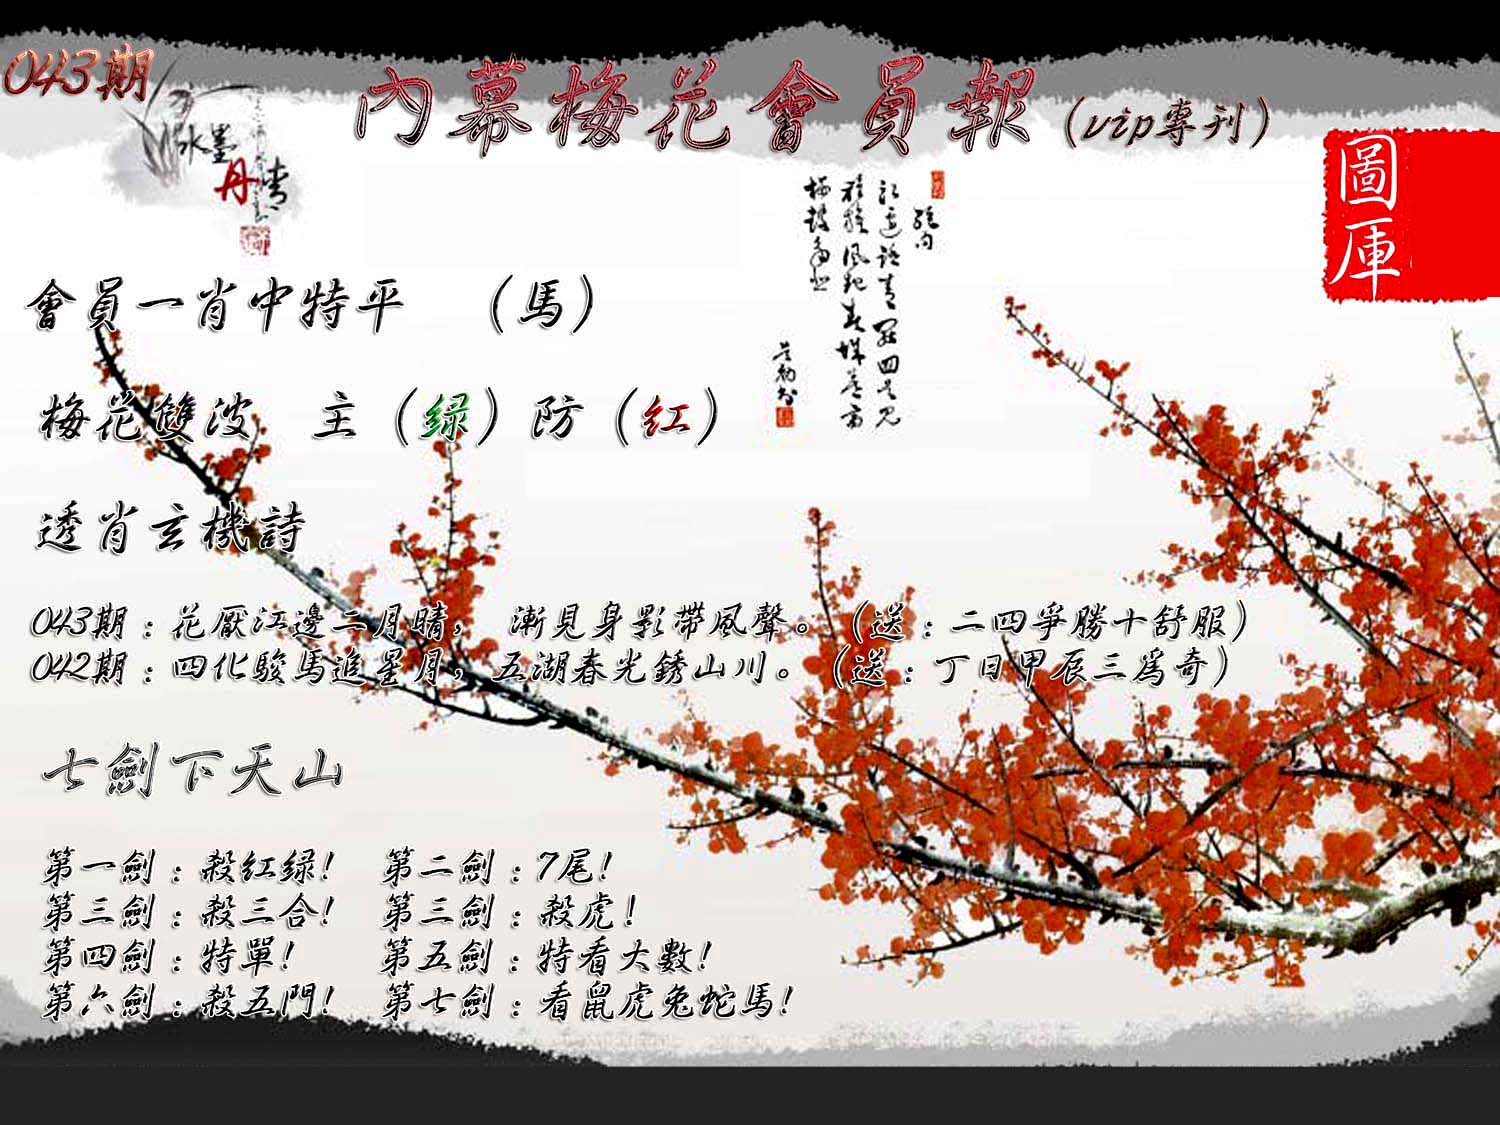 043期
內幕梅花會員報(vip專刊)
水墨
丹青
圖庫
會員一肖中特平 (馬)
梅花雙波 主(绿)防(红)
透肖玄機詩
043期:花厭江邊二月晴, 漸見身影帶風聲。(送:二四爭勝十舒服)
042期:四化駿馬追星月,五湖春光銹山川。(送:丁日甲辰三爲奇)
七劍下天山
第一劍:殺红绿! 第二劍:7尾!
第三劍:殺三合! 第三劍:殺虎!
第四劍:特單! 第五劍:特看大數!
第六劍:殺五門! 第七劍:看鼠虎兔蛇馬!